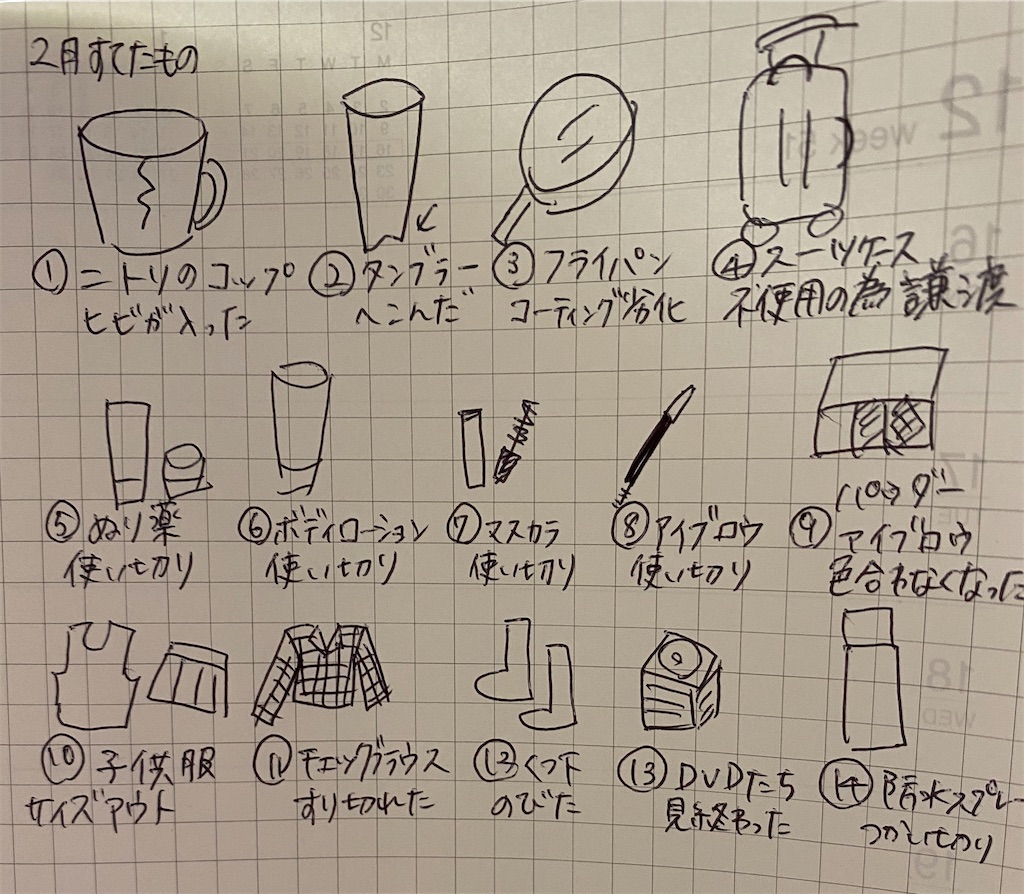 2月すてたもの
① ニトリのコップ
ヒビが入った
② タンブラー
へこんだ
③ フライパン
コーティング劣化
④ スーツケース
不使用の為譲渡
⑤ ぬり薬
使い切り
⑥ ボディローション
使い切り
⑦ マスカラ
使い切り
⑧ アイブロウ
使い切り
⑨ パウダー
アイブロウ
色合わなくなった
⑩ 子供服
サイズアウト
⑪ チェックブラウス
すり切れた
⑬ くつ下
のびた
⑬ DVDたち
見終わった
⑭ 防水スプレー
つかいきり
12
M T W T F S
12 Week 51
16
17
TUE
18
WED
19